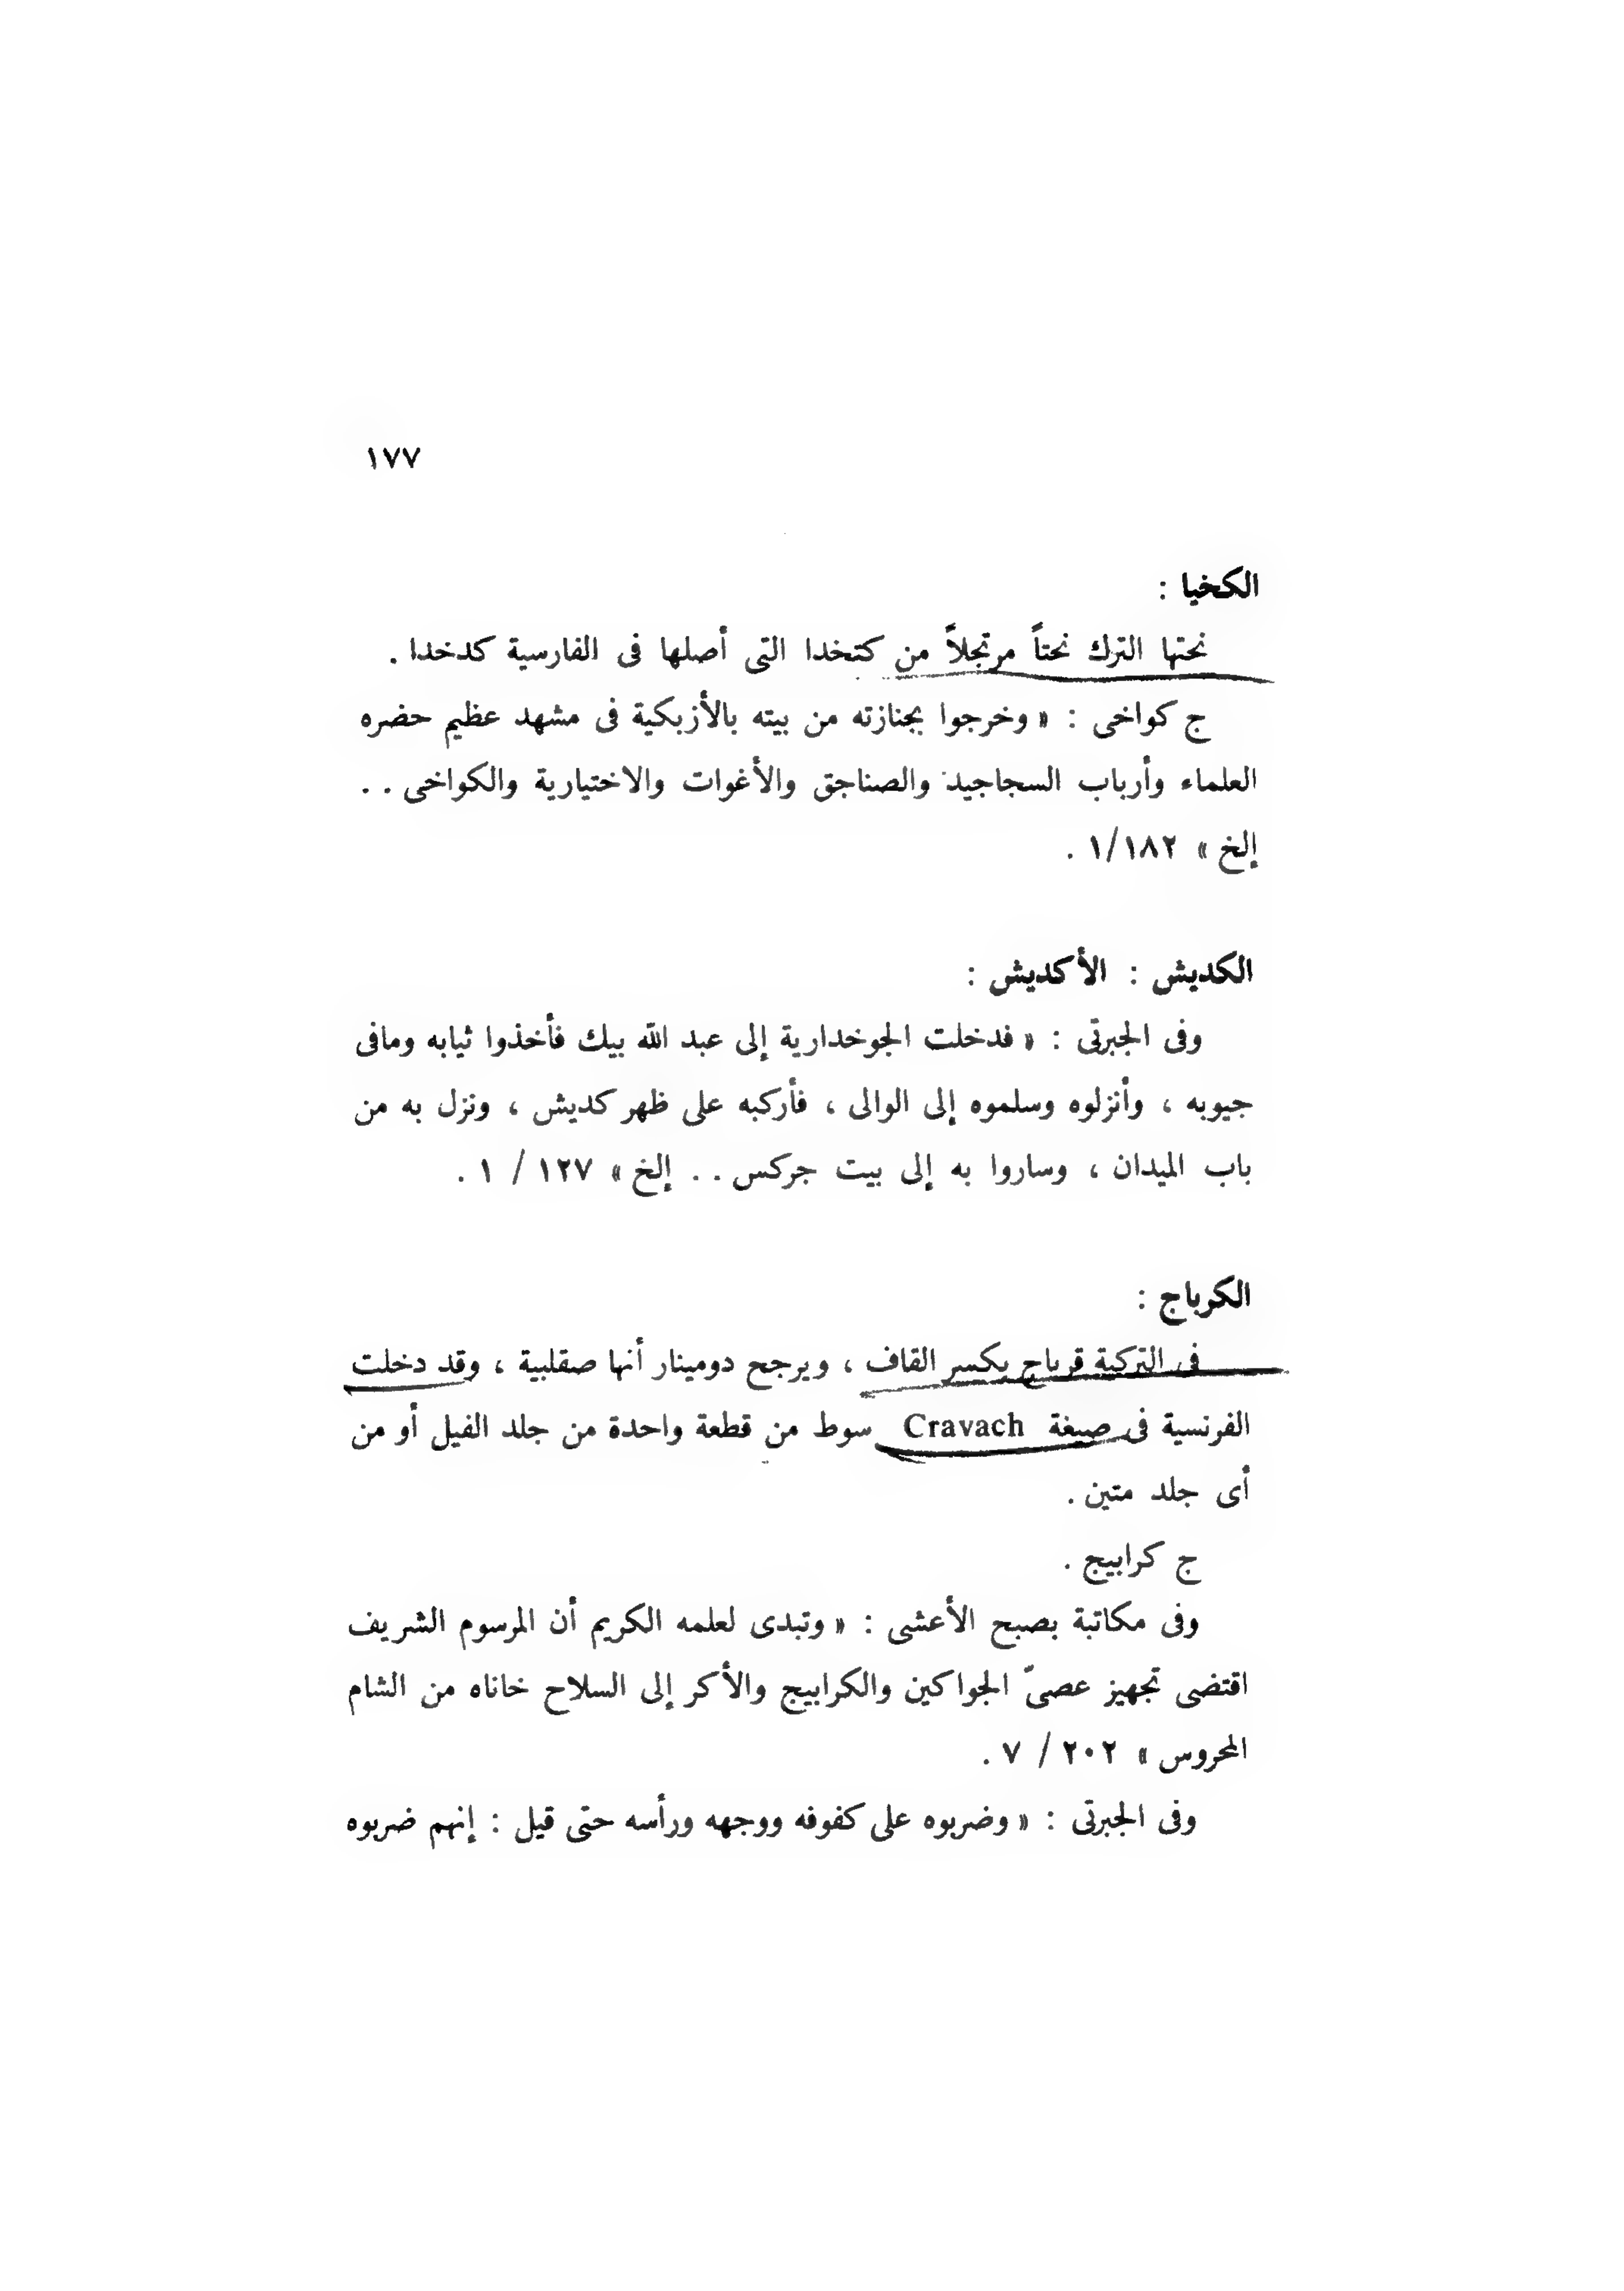 ١٧٧
الكخيا :
نحتها الترك نحتاً مرتجلاً من كتخدا التى أصلها فى الفارسية كدخدا .
ج كواخى : « وخرجوا بجنازته من بيته بالأزبكية فى مشهد عظيم حضره
العلماء وأرباب السجاجيد والصناجق والأغوات والاختيارية والكواخى . .
إلخ » ١/١٨٢ .
الكديش : الأكديش :
وفى الجبرتى : « فدخلت الجوخدارية إلى عبد الله بيك فأخذوا ثيابه ومافى
جيوبه ، وأنزلوه وسلموه إلى الوالى ، فأركبه على ظهر كديش ، ونزل به من
باب الميدان ، وساروا به إلى بيت جركس . . إلخ » ١٢٧ / ١ .
الكرباج :
فى التركية قرباج بكسر القاف ، ويرجح دومينار أنها صقلبية ، وقد دخلت
الفرنسية فى صيغة Cravach سوط من قطعة واحدة من جلد الفيل أو من
أى جلد متين .
ج كرابيج .
وفى مكاتبة بصبح الأعشى : « وتبدى لعلمه الكريم أن المرسوم الشريف
اقتضى تجهيز عصىّ الجواكين والكرابيج والأكر إلى السلاح خاناه من الشام
المحروس » ٢٠٢ / ٧ .
وفى الجبرتى : « وضربوه على كفوفه ووجهه ورأسه حتى قيل : إنهم ضربوه